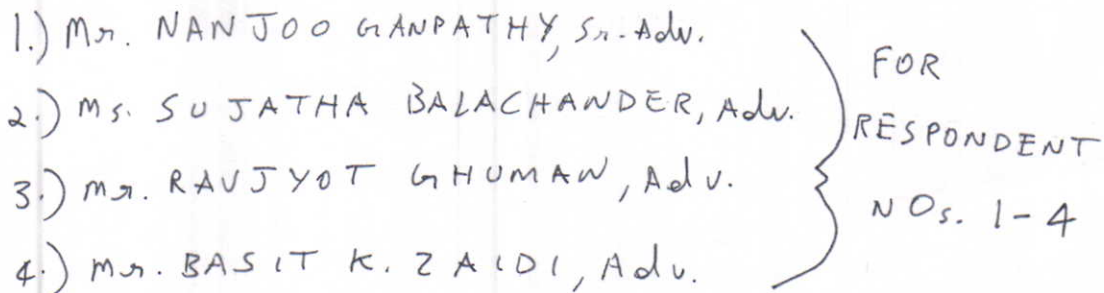 1.) Mr. NANJOO GANPATHY, Sr. Adv.
2.) Ms. SUJATHA BALACHANDER, Adv.
3.) Mr. RAVJYOT GHUMAN, Adv.
4.) Mr. BASIT K. ZAIDI, Adv.
FOR
RESPONDENT
NOs. 1-4